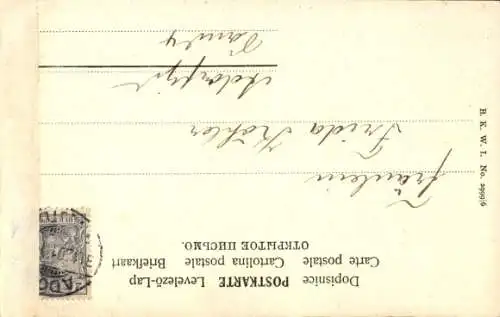 Dopisnice POSTKARTE Levelező-Lap
Carte postale Cartolina postale Briefkaart
ОТКРЫТОЕ ПИСЬМО.
Fräulein
Frida Köhler
B. K. W. I. No. 2999/6
ADO